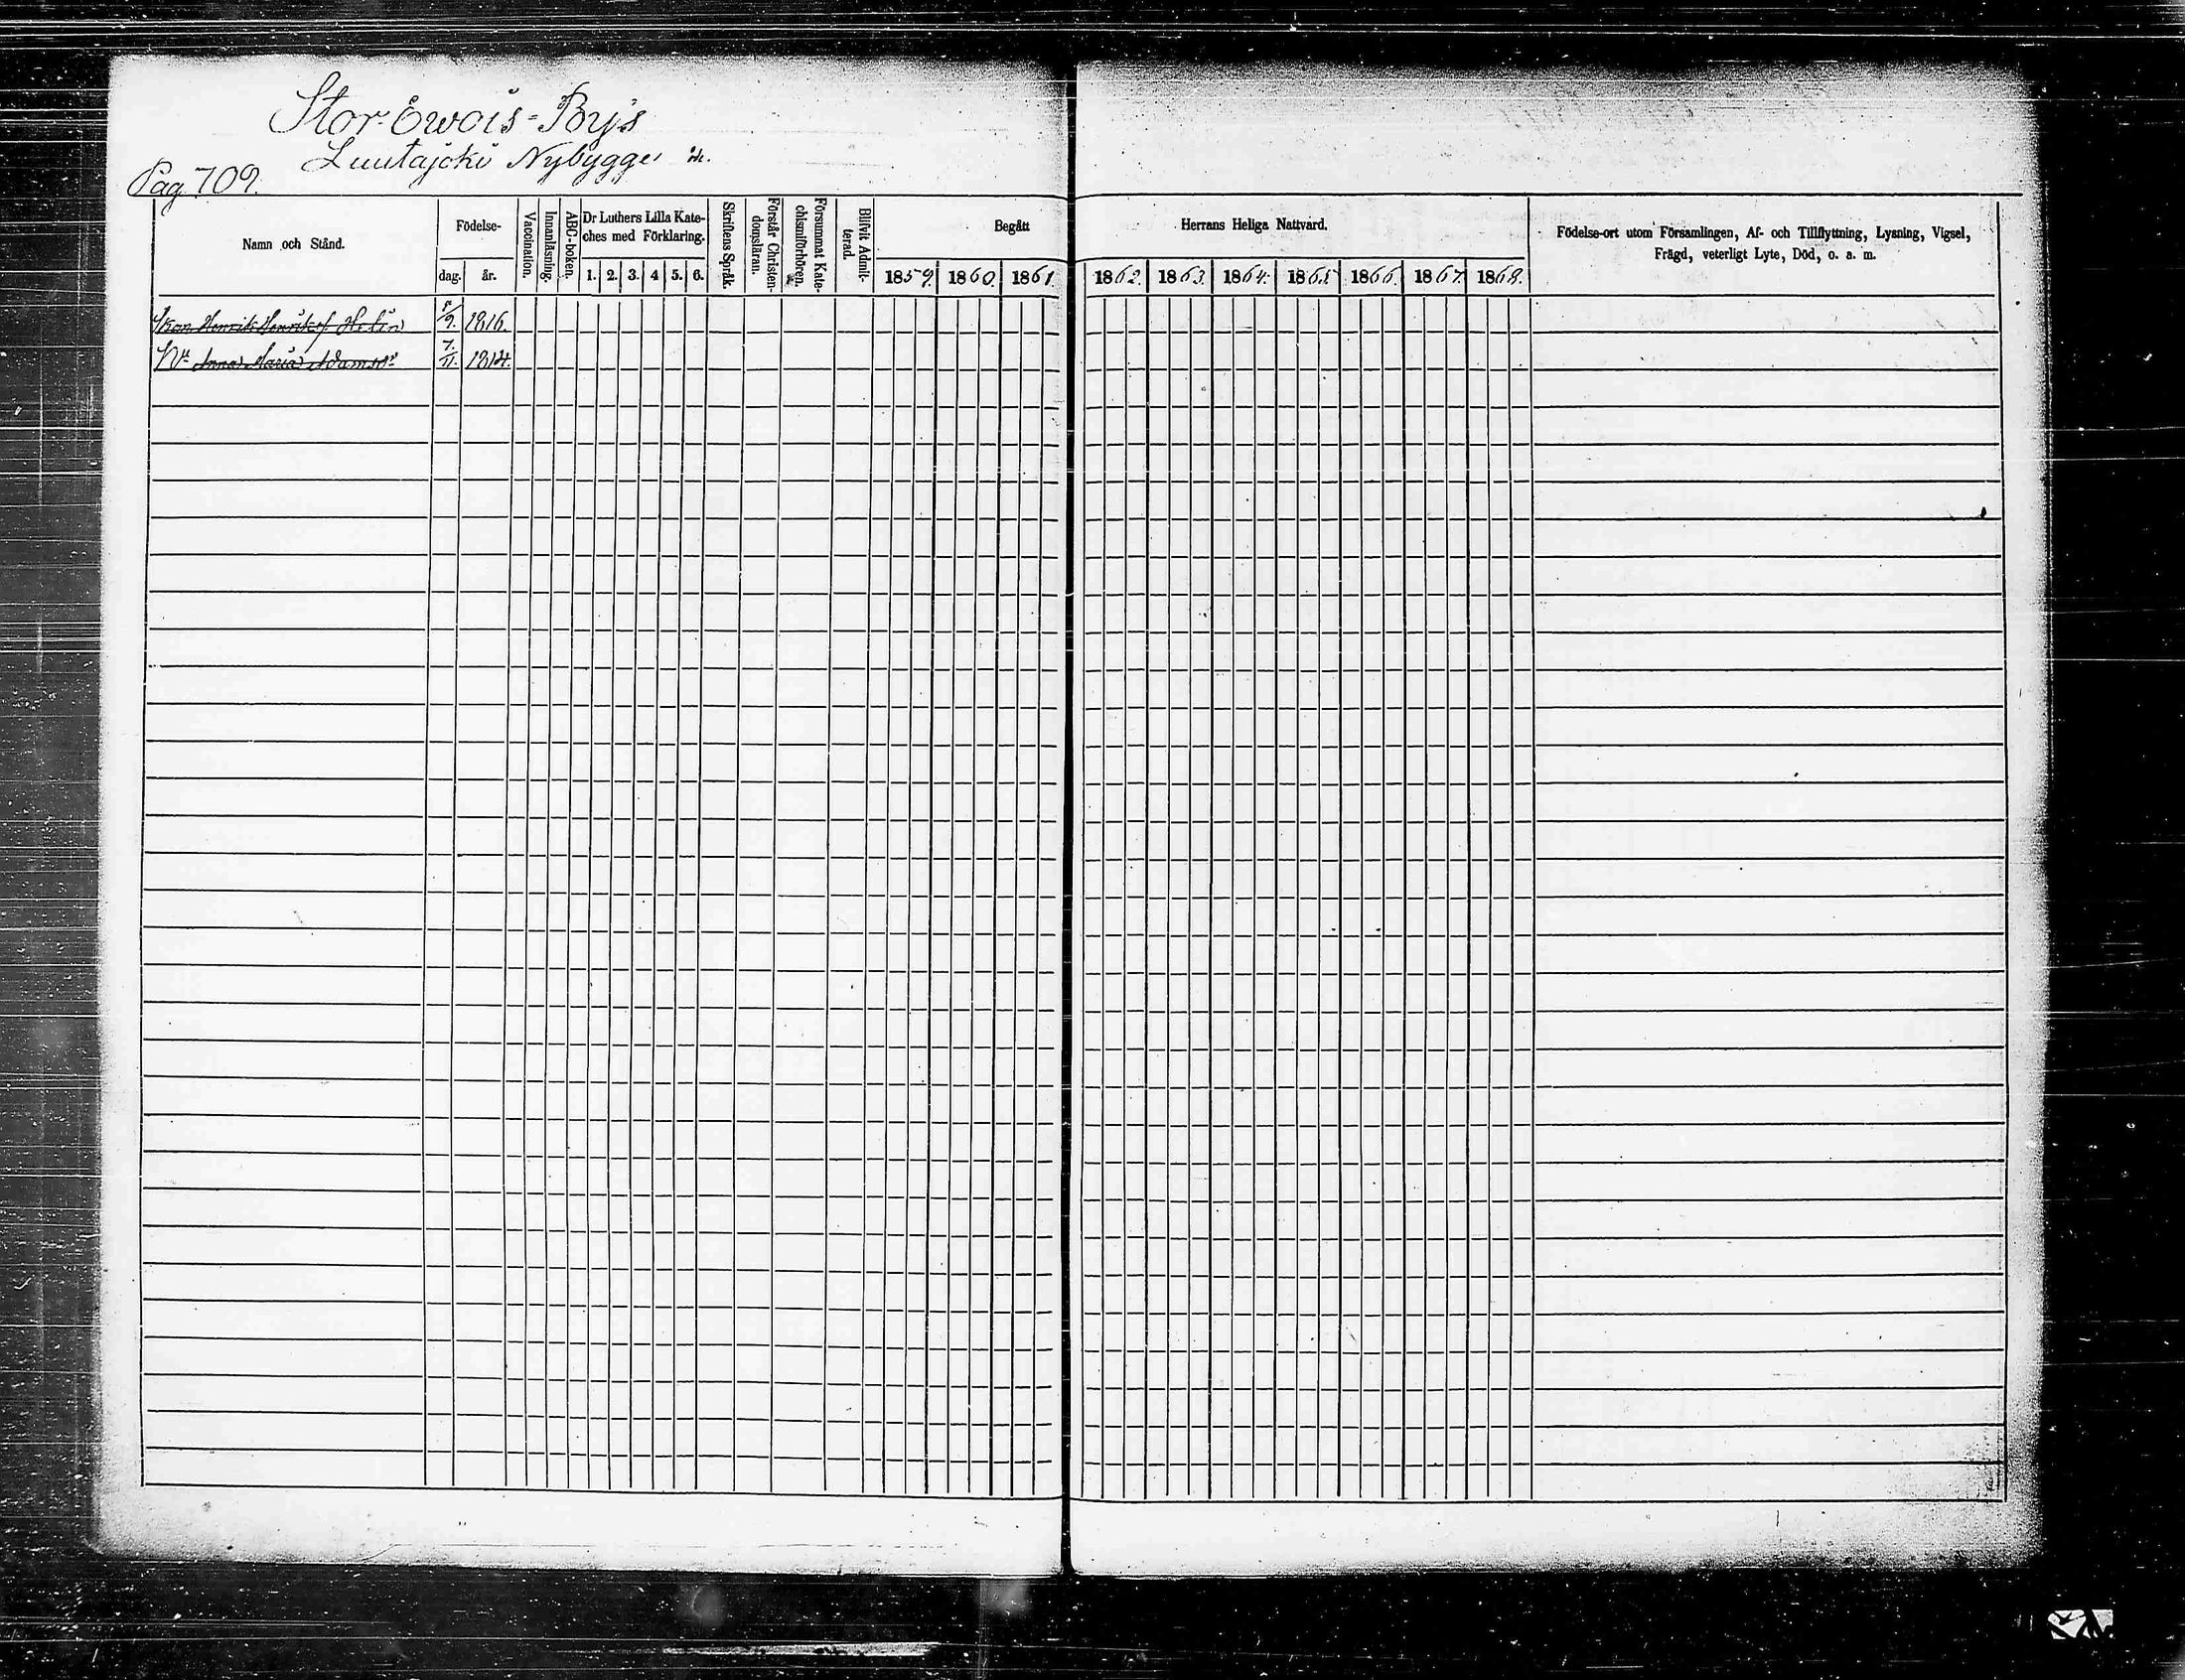 Stor-Ewois-Bys
Luutajoki Nybygge
Pag. 709.
Namn och Stånd.
Födelse-
dag.
år.
Vaccination.
Innanläsning.
ABC-boken.
Dr Luthers Lilla Kate-
ches med Förklaring.
1. 2. 3. 4 5. 6.
Skriftens Språk.
Förstår Christen-
domsläran.
Försummat Kate-
chismiförhören.
Blifvit Admit-
terad.
Begått
1859. 1860. 1861.
Herrans Heliga Nattvard.
1862. 1863. 1864. 1865. 1866. 1867. 1868.
Födelse-ort utom Församlingen, Af- och Tillflyttning, Lysning, Vigsel,
Frägd, veterligt Lyte, Död, o. a. m.
Henrik Henriks. Helin 5/9. 1816.
Anna Maria Adams 7/11. 1814.